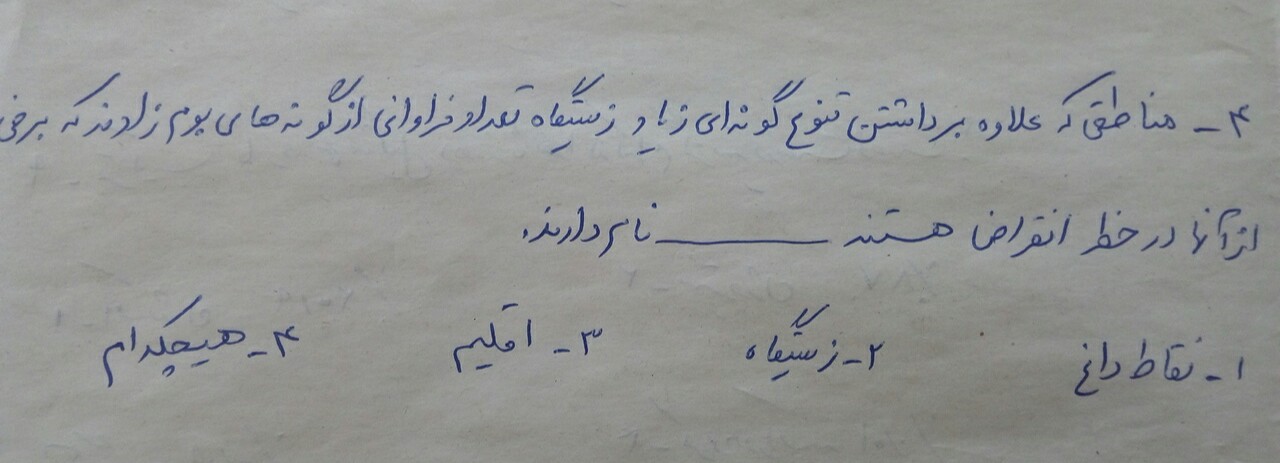 ۴- مناطقی که علاوه بر داشتن تنوع گونه‌ای زیاد زیستگاه تعداد فراوانی از گونه‌های بوم‌زادند که برخی
از آنها در خطر انقراض هستند ــــــــ نام دارند.
۱- نقاط داغ ۲- زیستگاه ۳- اقلیم ۴- هیچکدام